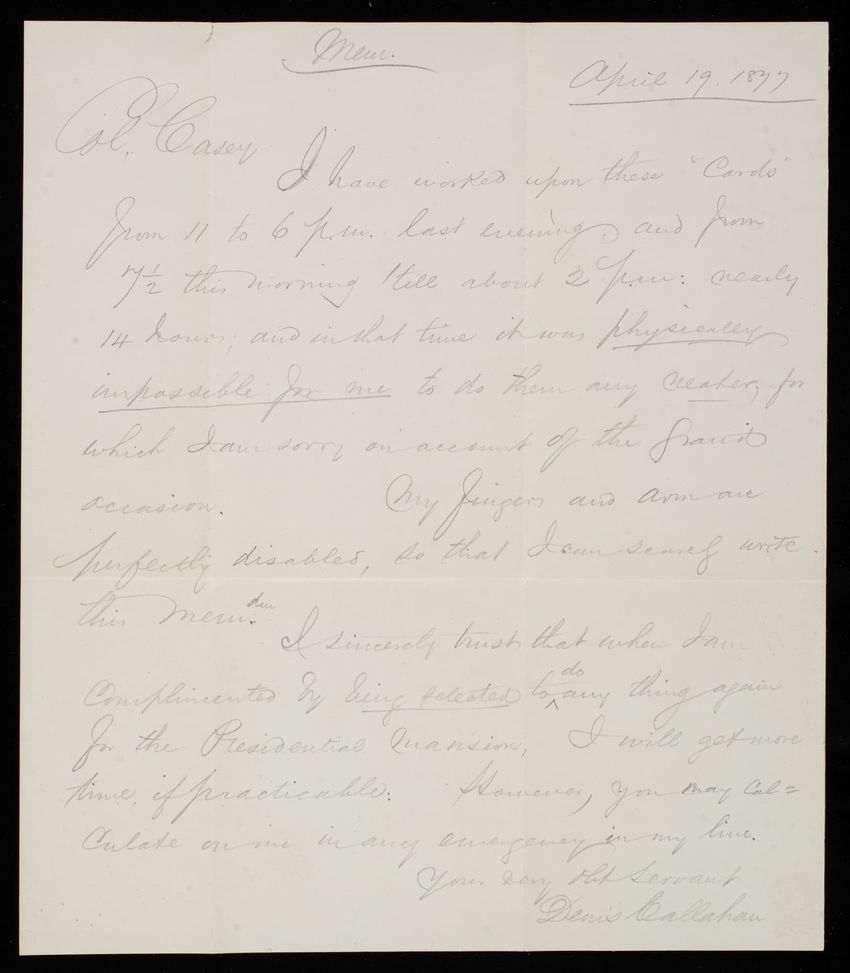 Mem.
April 19. 1877
Col. Casey
I have worked upon these "Cards"
from 11 to 6 p.m. last evening; and from
7½ this morning 'till about 2 p.m: nearly
14 hours; and in that time it was physically
impossible for me to do them any neater, for
which I am sorry on account of the grand
occasion. My fingers and arm are
perfectly disabled, so that I can scarcely write
this Mem.dm
I sincerely trust that when I am
Complimented by being selected to do any thing again
for the Presidential Mansion, I will get more
time, if practicable. However, you may Cal=
culate on me in any emergency in my line.
Your very obt servant
Denis Callahan